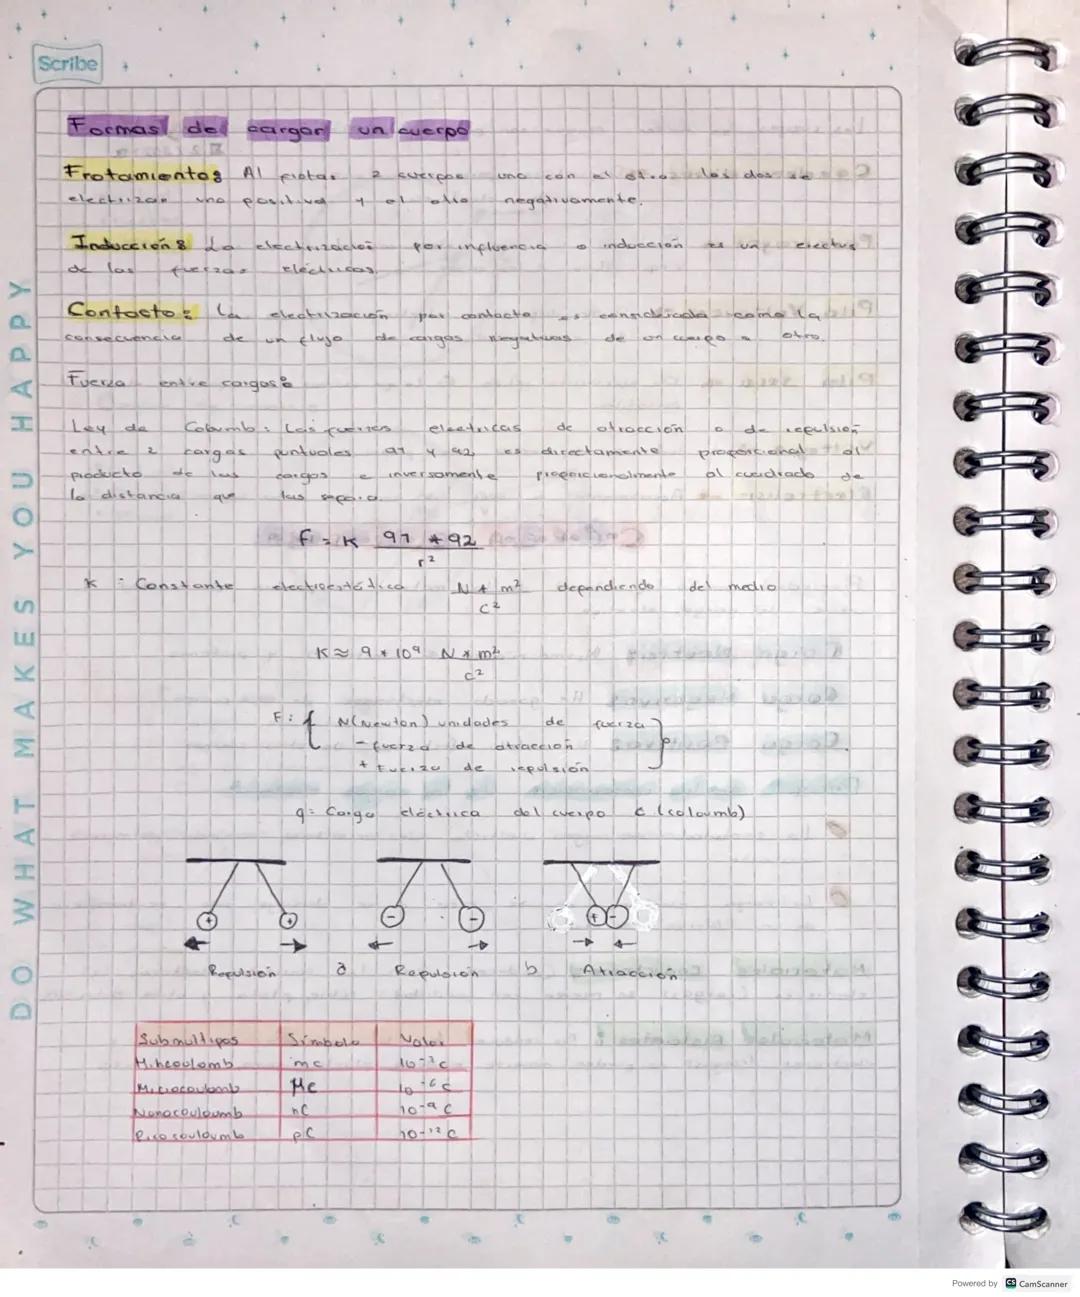 Scribe
DO WHAT MAKES YOU HAPPY
Formas de cargar un cuerpo
Frotamiento: Al frotar 2 cuerpos uno con el otro los dos se
electrizan uno positiva y el otro negativamente.
Inducción: La electrización por influencia o inducción es un efectus
de las fuerzas eléctricas.
Contacto: La electrización por contacto es considerada como la
consecuencia de un flujo de cargas negativas de un cuerpo a otro.
Fuerza entre cargas:
Ley de Coloumb: Las fuerzas electricas de atracción o de repulsión
entre 2 cargas puntuales q1 y q2, es directamente proporcional al
producto de las cargas e inversamente proporcionalmente al cuadrado de
la distancia que las separa.
F = K q1 * q2
r²
K : Constante electroestática N * m² dependiendo del medio
C²
K ≈ 9 * 10⁹ N * m²
C²
F: { N(Newton) unidades de fuerza
- fuerza de atracción
+ Fuerza de repulsión }
q= Carga eléctrica del cuerpo C (coloumb)
+ + - - + -
Repulsión a Repulsión b Atracción
Submultipos Símbolo Valor
Milicoulomb mc 10⁻³c
Microcoulomb μc 10⁻⁶c
Nanocouloumb nC 10⁻⁹ c
Picocouloumb pC 10⁻¹² c
Powered by CS CamScanner